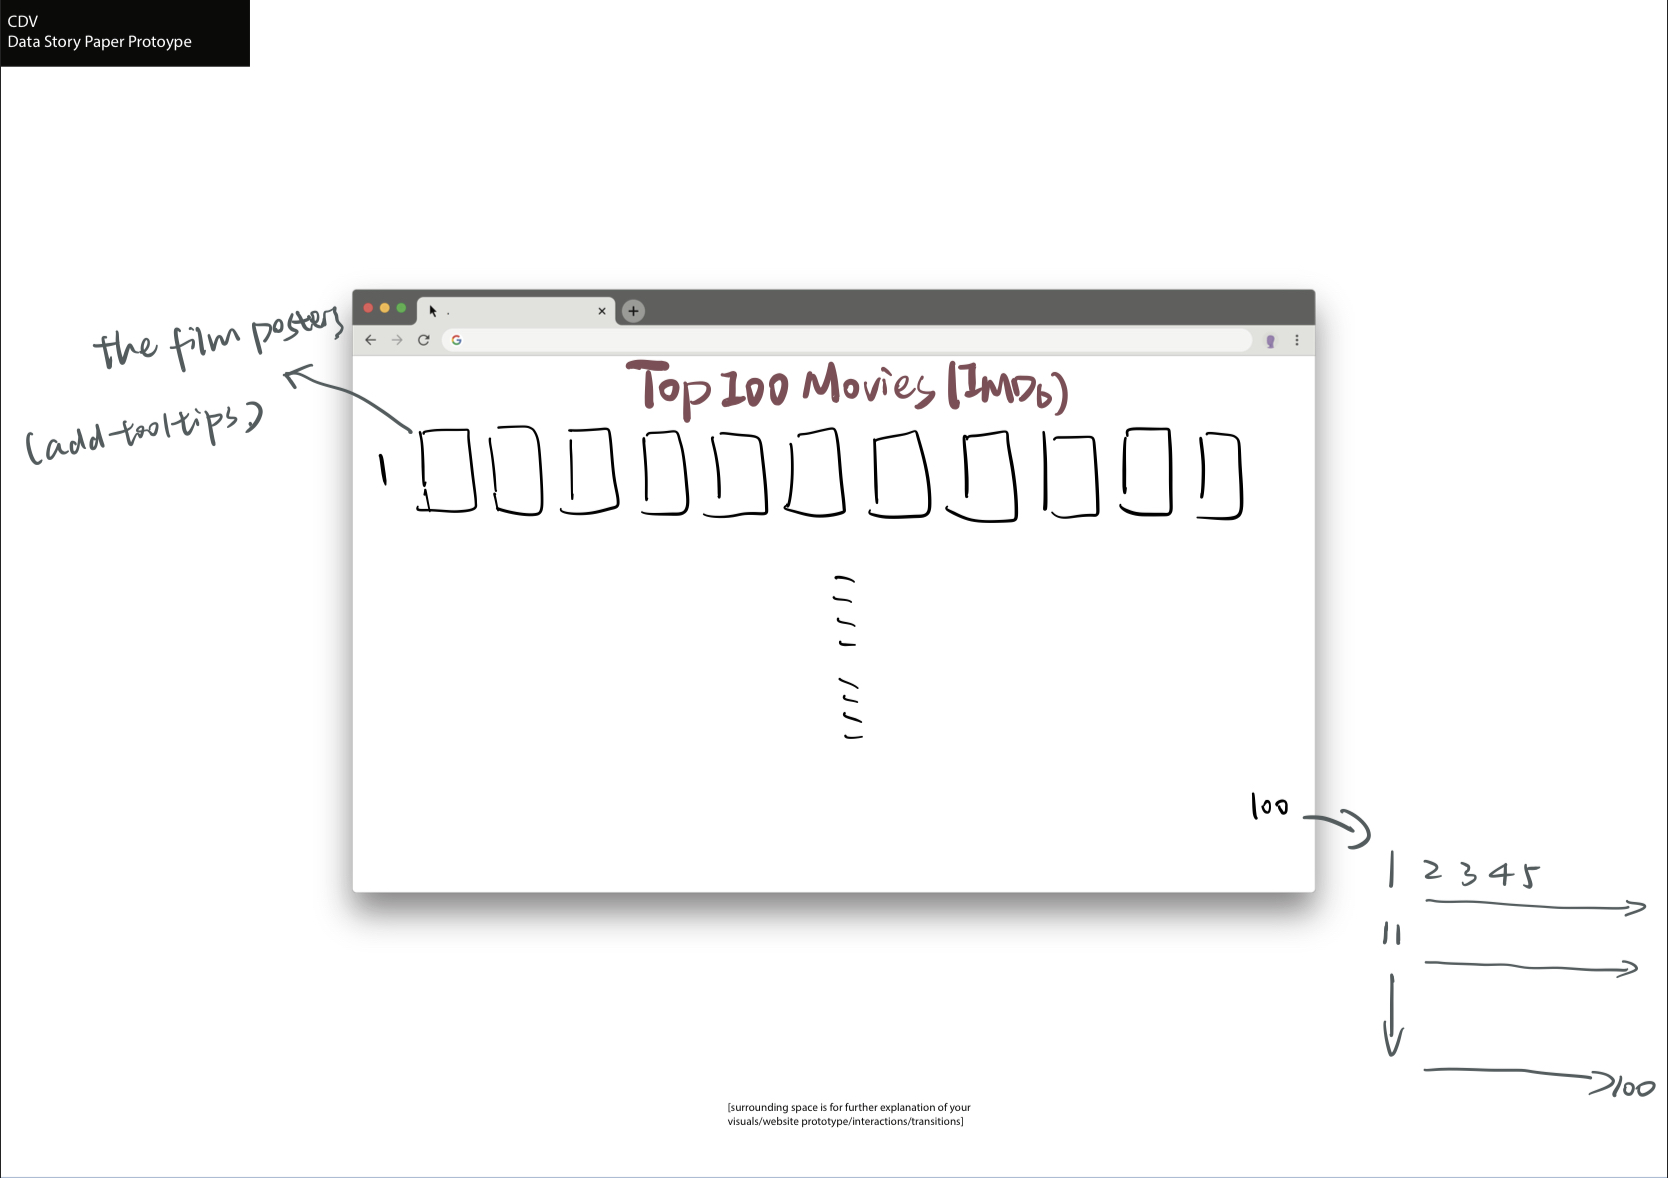 CDV
Data Story Paper Protoype
the film posters
(add tooltips)
Top 100 Movies (IMDb)
1
100
1 2 3 4 5
11
100
[surrounding space is for further explanation of your
visuals/website prototype/interactions/transitions]